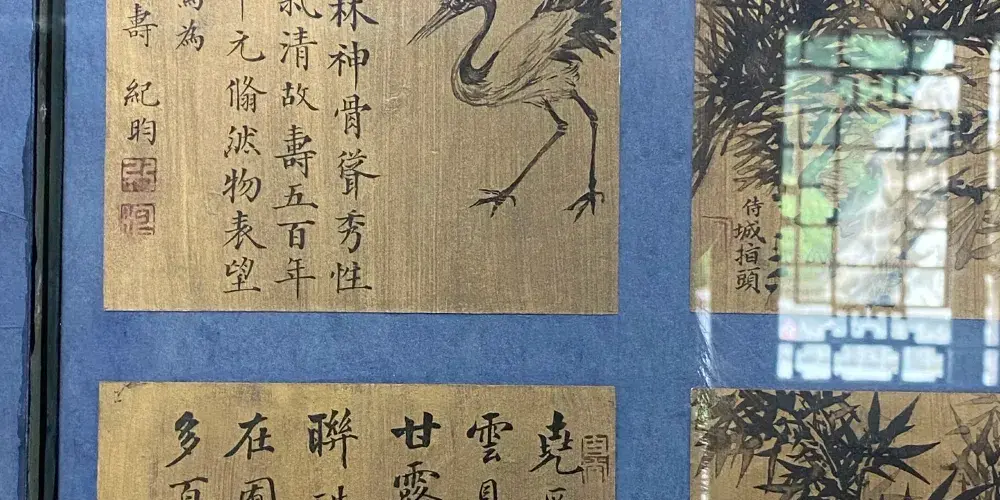 林神骨聳秀性
氣清故壽五百年
元翛然物表望
為
壽 紀昀
侍城指頭
堯
雲
甘露
聯
在
多百